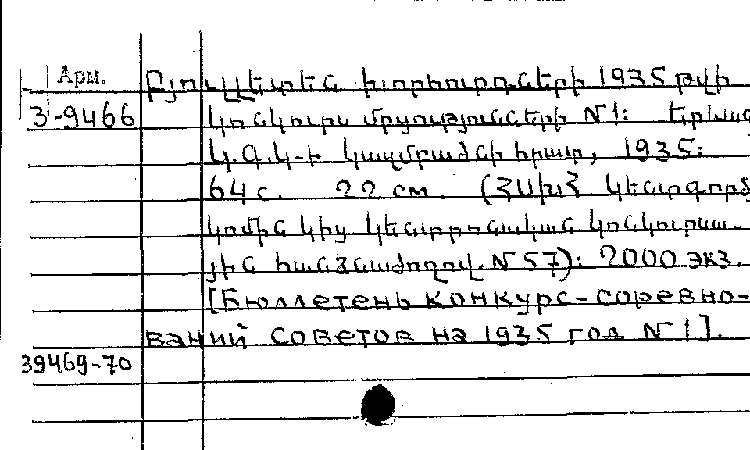 Арм.
Բյուլլետեն խորհուրդների 1935 թվի
3-9466
կոնկուրս մրցությունների N1: Երևան
Կ.Գ.Կ-ի կազմրաձևի հրատ, 1935:
64 с. 22 см. (ՀՍԽՀ Կենտգործ
կոմին կից կենտրոնական կոնկուրսա-
յին հանձնաժողով. N57): 2000 экз.
[Бюллетень конкурс-соревно-
ваний советов на 1935 год N1].
39469-70